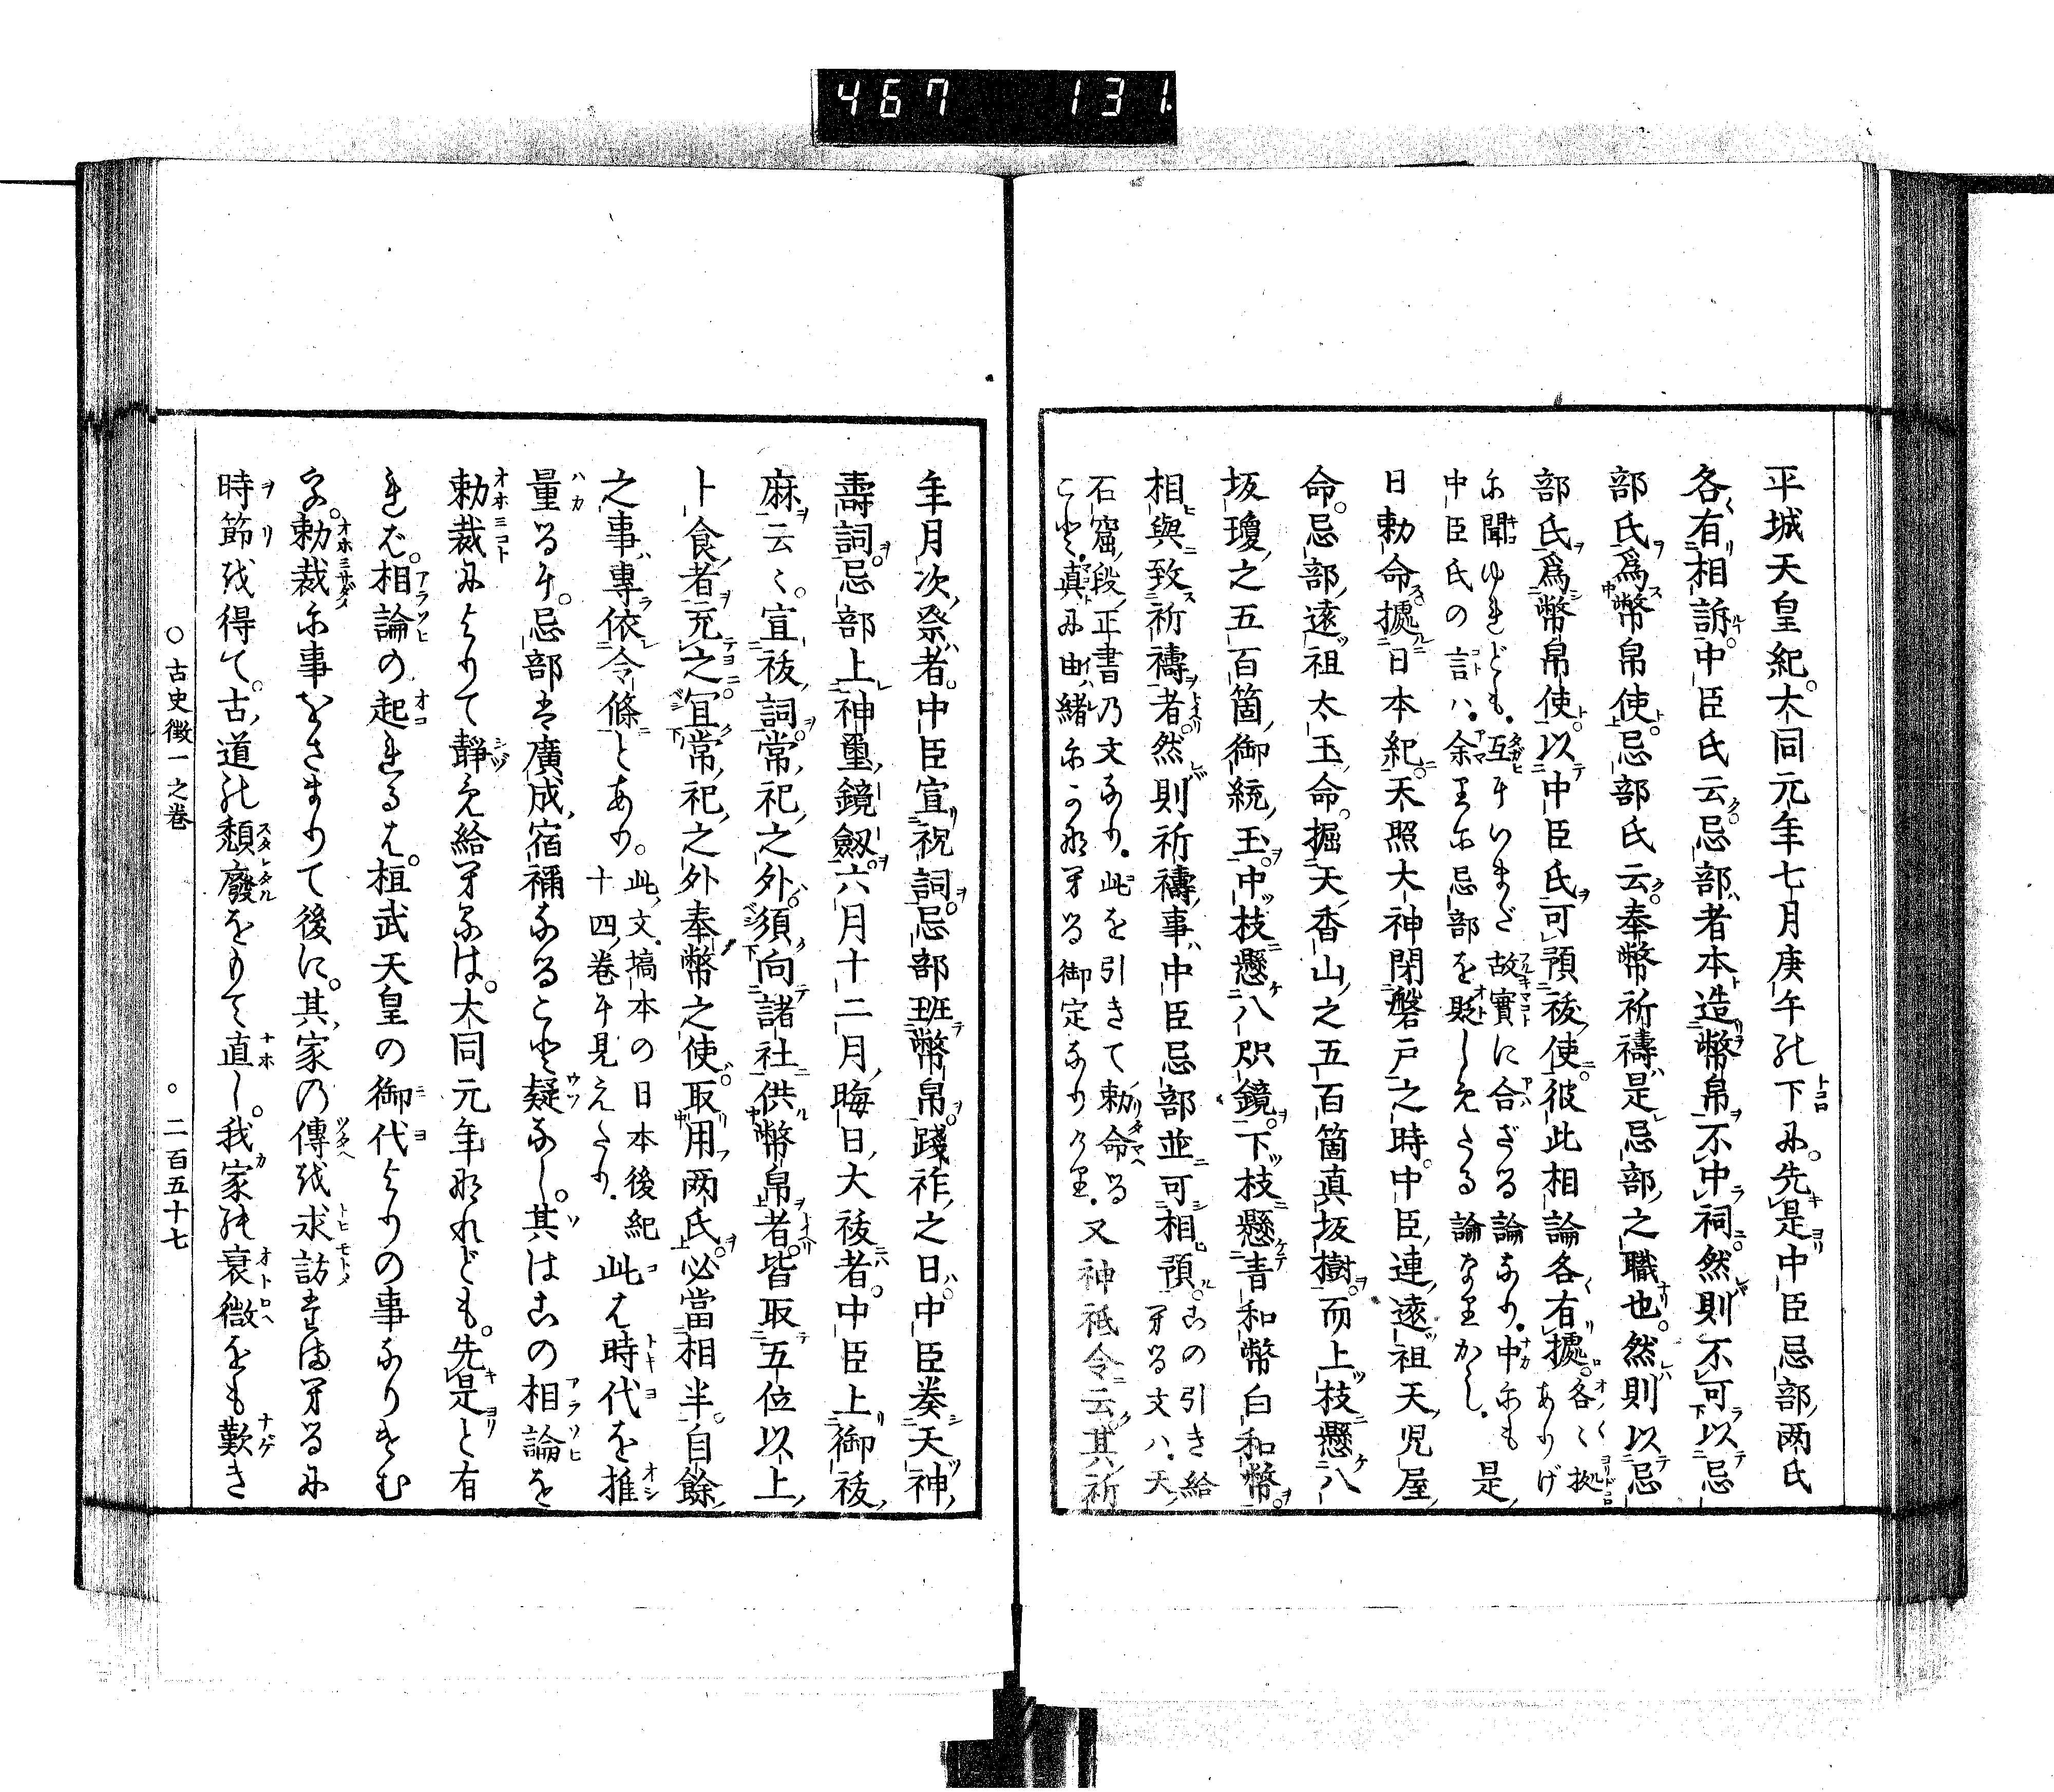 467 131
平城天皇紀。大同元年七月庚午の下に。先是中臣忌部両氏
各有相訴。中臣氏云。忌部者本造幣帛。不中祠。然則不可以忌
部氏爲幣帛使。忌部氏云。奉幣祈禱。是忌部之職也。然則以忌
部氏爲幣帛使。以中臣氏可預祓使。彼此相論各有據。各〻拠ありげ
に聞ゆれども。互にいまだ故實に合ざる論なり。中にも
中臣氏の言ハ。余りに忌部を貶しめたる論なりかし。是
日勅命據日本紀。天照大神閉磐戸之時。中臣連遠祖天児屋
命。忌部遠祖太玉命。掘天香山之五百箇真坂樹。而上枝懸八
坂瓊之五百箇御統玉。中枝懸八咫鏡。下枝懸青和幣白和幣。
相與致祈禱者。然則祈禱事。中臣忌部並可相預。この引き給へる文ハ。天
石窟段正書の文なり。此を引きて勅命る
こと。真に由緒にかなへる御定なりけり。又神祇令云。其祈
年月次祭者。中臣宣祝詞。忌部班幣帛。踐祚之日。中臣奏天神
壽詞。忌部上神璽鏡劔。六月十二月晦日大祓者。中臣上御祓
麻云〻。宣祓詞。常祀之外。須向諸社供幣帛者。皆取五位以上
卜食者充之。宜常祀之外奉幣之使。取用両氏。必當相半。自餘
之事專依令條とあり。此文。搞本の日本後紀十四巻に見えたり。此は時代を推
量るに。忌部は廣成宿禰なること疑なし。其はこの相論を
勅裁によりて靜め給へるは。大同元年なれども。先是と有
れば。相論の起れるは。桓武天皇の御代よりの事なりけむ
を。勅裁に事をさまりて後に。其家の傳を求訪たまへるに
時節を得て。古道の頽廢をもて直し。我家の衰微をも歎き
○古史徴一之巻 ○二百五十七